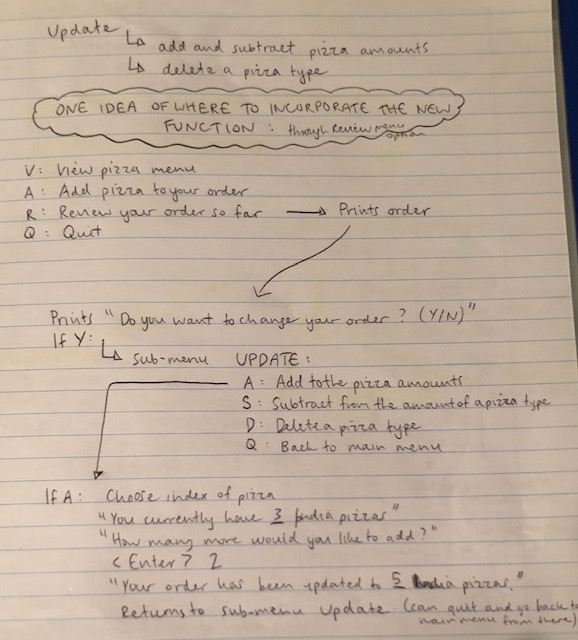 Update
↳ add and subtract pizza amounts
↳ delete a pizza type
ONE IDEA OF WHERE TO INCORPORATE THE NEW
FUNCTION : through Review menu
option
V: View pizza menu
A: Add pizza to your order
R: Review your order so far → Prints order
Q: Quit
Prints "Do you want to change your order? (Y/N)"
If Y:
↳ Sub-menu UPDATE:
A: Add to the pizza amounts
S: Subtract from the amount of a pizza type
D: Delete a pizza type
Q: Back to main menu
If A: Choose index of pizza
"You currently have 3 India pizzas"
"How many more would you like to add?"
< Enter 7 2
"Your order has been updated to 5 India pizzas."
Returns to sub-menu Update (can quit and go back to
main menu from there)